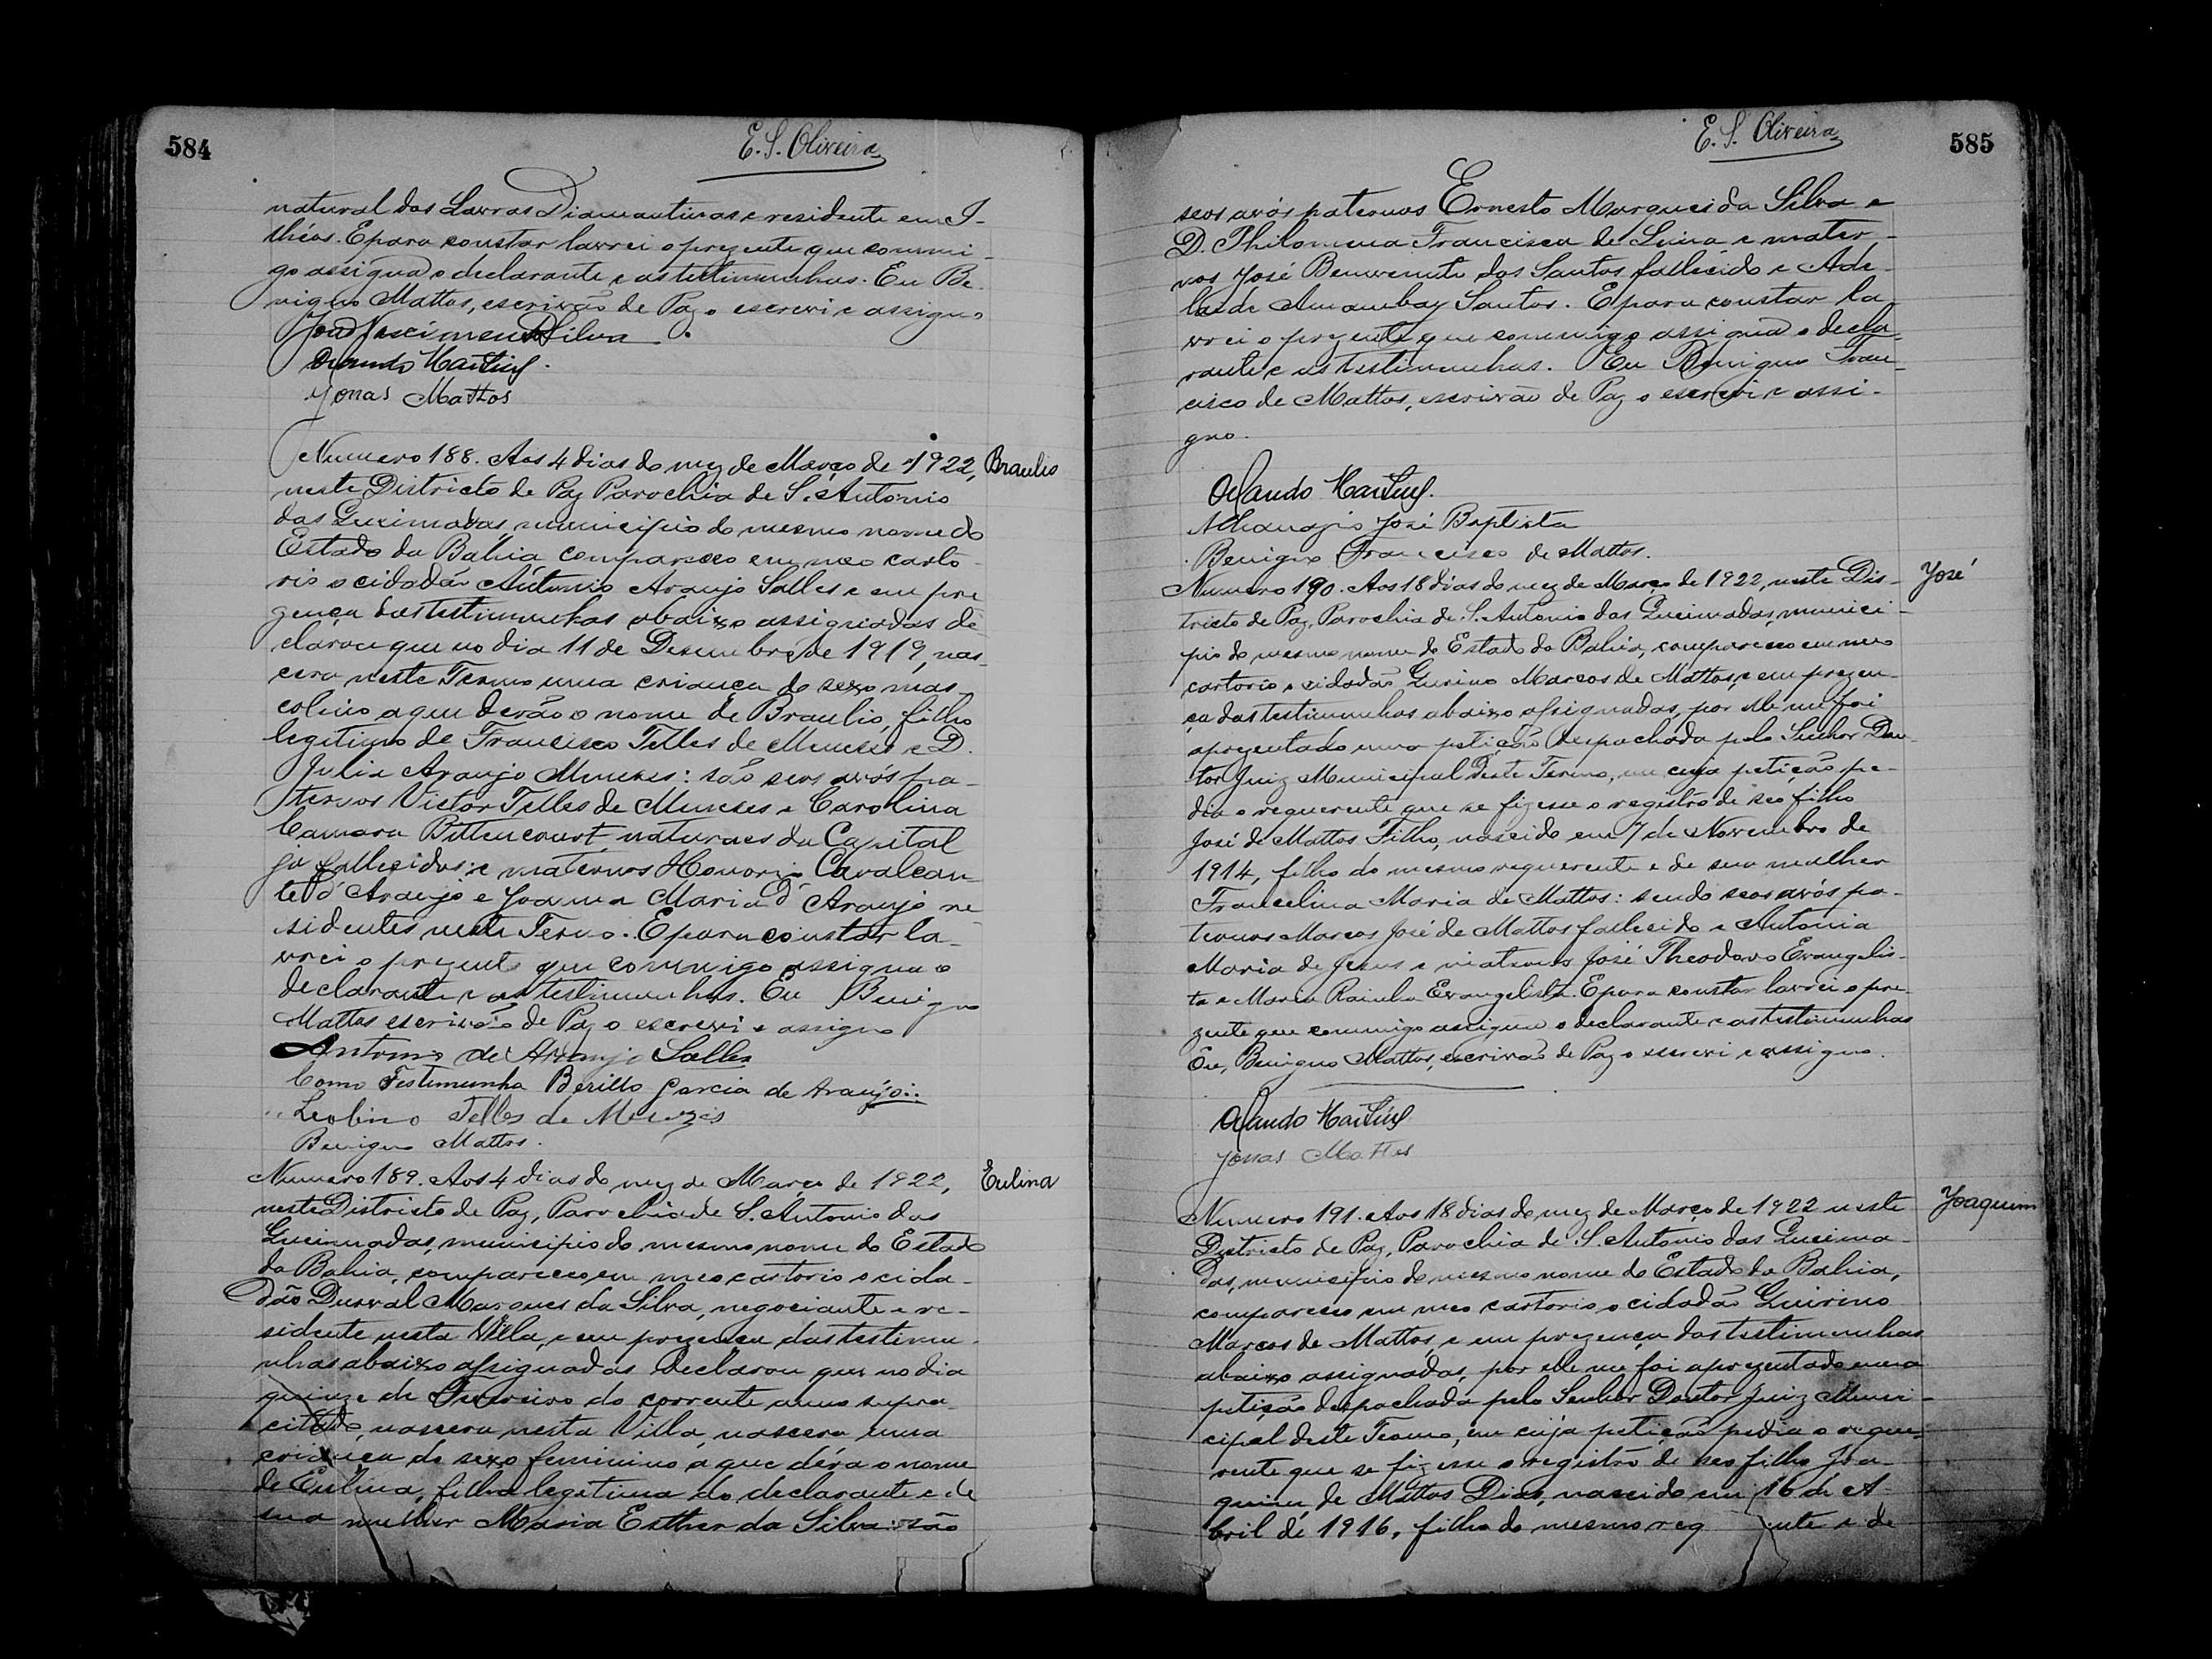 584
E. S. Oliveira
natural das Lavras Diamantinas e residente em I-
lhéos. E para constar lavrei o prezente que commi-
go assigna o declarante e as testimunhas. Eu Be-
nigno Mattos, escrivão de Paz o escrevi e assigno
João Nascimento Silva
Orlando Martins.
Jonas Mattos
Numero 188. Aos 4 dias do mez de Março de 1922,
Braulio
neste Districto de Paz Parochia de S. Antonio
das Queimadas, municipio do mesmo nome do
Estado da Bahia compareceo em meo carto-
rio o cidadão Antonio Araujo Salles e em pre
zença das testimunhas abaixo assignadas de
clarou que no dia 11 de Desembro de 1919, nas-
cera neste Termo uma criança do sexo mas-
colino a que derão o nome de Braulio, filho
legitimo de Francisco Telles de Meneses e D.
Julia Araujo Meneses: são seos avós pa-
ternos Victor Telles de Meneses e Carolina
Camara Bittencourt, naturaes da Capital
já fallecidos; e maternos Honorio Cavalcan-
te d'Araujo e Joanna Maria d'Araujo re-
sidentes neste Termo. E para constar la-
vrei o prezente que commigo assigna o
declarante e as testimunhas. Eu Benigno
Mattos escrivão de Paz o escrevi e assigno
Antonio de Araujo Salles
Como Testimunha Berillo Garcia de Araújo:.
" Leolino Telles de Menezes
Benigno Mattos.
Numero 189. Aos 4 dias do mez de Março de 1922,
Eulina
neste Districto de Paz, Parochia de S. Antonio das
Queimadas, municipio do mesmo nome do Estado
da Bahia, compareceo em meo cartorio o cida-
dão Durval Marques da Silva, negociante e re-
sidente nesta Villa, e em prezença das testimu-
nhas abaixo assignadas declarou que no dia
quinze de Fevereiro do corrente anno supra-
citado, nascera nesta Villa, nascera uma
criança do sexo feminino a que déra o nome
de Eulina, filha legitima do declarante e de
sua mulher Maria Esther da Silva: são
E. S. Oliveira
585
seos avós paternos Ernesto Marques da Silva e
D. Philomena Francisca de Lima e mater-
nos José Benvenuto dos Santos fallecido e Ade-
laide Amambay Santos. E para constar la-
vrei o prezente que commigo assigna o decla-
rante e as testimunhas. Eu Benigno Fran-
cisco de Mattos, escrivão de Paz o escrevi e assi-
gno.
Orlando Martins.
Athanazio José Baptista
Benigno Francisco de Mattos.
Numero 190. Aos 18 dias do mez de Março de 1922, neste Dis-
José
tricto de Paz, Parochia de S. Antonio das Queimadas, munici-
pio do mesmo nome do Estado da Bahia, compareceo em meo
cartorio o cidadão Quirino Marcos de Mattos, e em prezen-
ça das testimunhas abaixo assignadas, por elle me foi
aprezentado uma petição despachada pelo Senhor Dou-
tor Juiz Municipal deste Termo, em cuja petição pe-
dia o requerente que se fizesse o registro de seo filho
José de Mattos Filho, nascido em 7 de Novembro de
1914, filho do mesmo requerente e de sua mulher
Francelina Maria de Mattos: sendo seos avós pa-
ternos Marcos José de Mattos fallecido e Antonia
Maria de Jesus e maternos José Theodoro Evangelis-
ta e Maria Rainha Evangelista. E para constar lavrei o pre-
zente que commigo assigna o declarante e as testimunhas
Eu, Benigno Mattos, escrivão de Paz o escrevi e assigno.
Orlando Martins
Jonas Mattos
Numero 191. Aos 18 dias do mez de Março de 1922 neste
Joaquim
Districto de Paz, Parochia de S. Antonio das Queima-
das, municipio do mesmo nome do Estado da Bahia,
compareceo em meo cartorio o cidadão Quirino
Marcos de Mattos, e em prezença das testimunhas
abaixo assignadas, por elle me foi aprezentado uma
petição despachada pelo Senhor Doutor Juiz Muni-
cipal deste Termo, em cuja petição pedia o reque-
rente que se fizesse o registro de seo filho Joa-
quim de Mattos Dias, nascido em 16 de A-
bril de 1916, filho do mesmo req ente e de